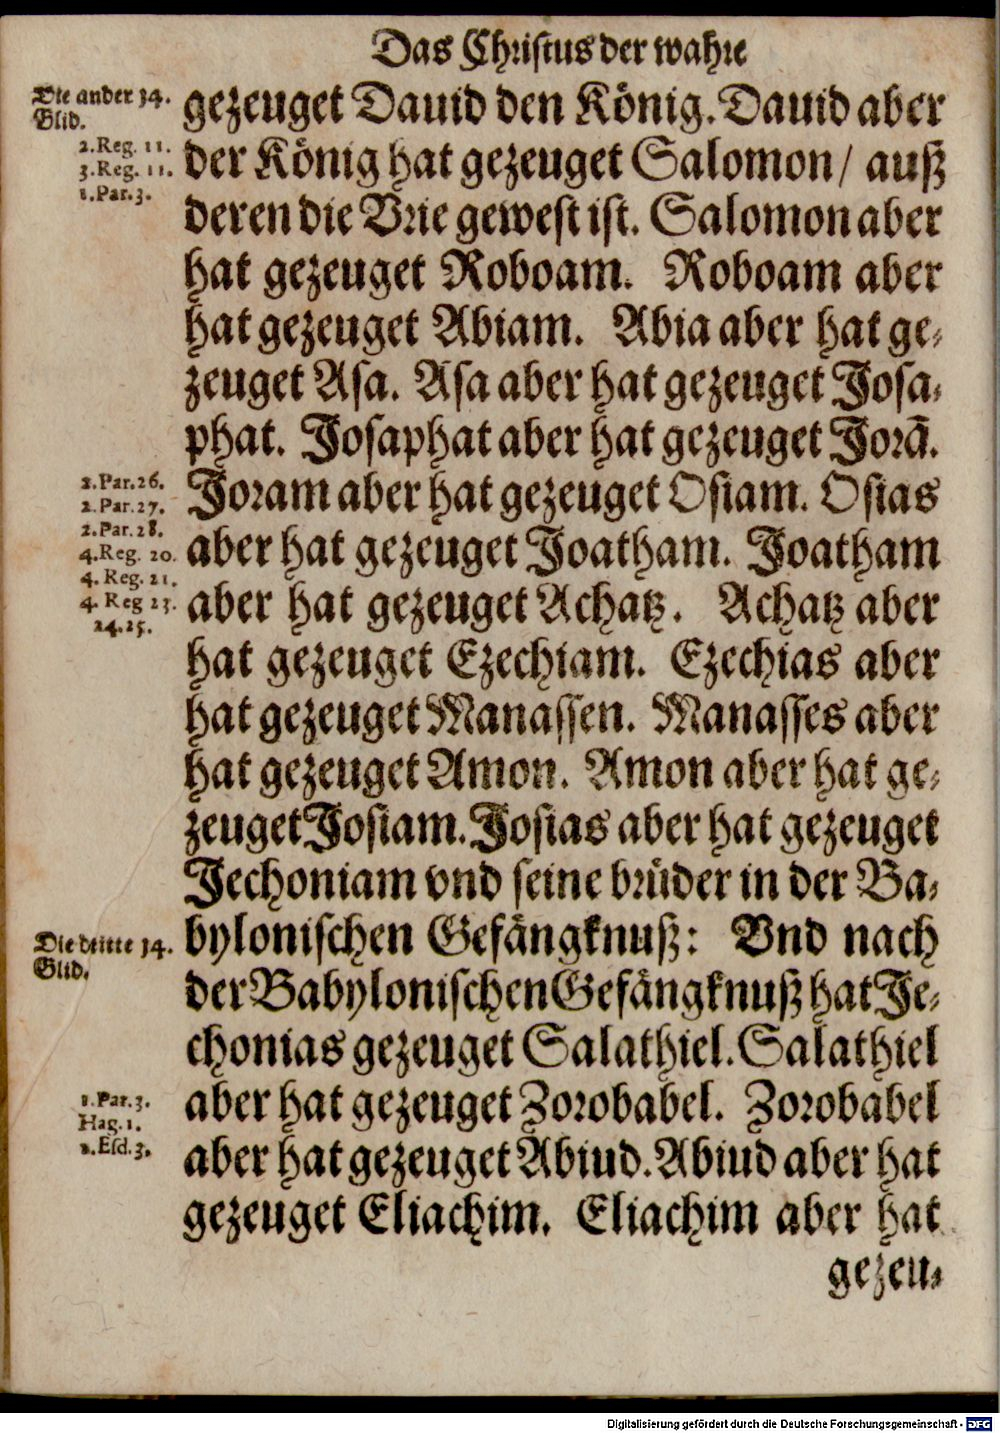 Das Christus der wahre
Die ander 14.
Glid.
2.Reg. 11.
3.Reg. 11.
1.Par.3.
gezeuget Dauid den König. Dauid aber
der König hat gezeuget Salomon / auß
deren die Vrie gewest ist. Salomon aber
hat gezeuget Roboam. Roboam aber
hat gezeuget Abiam. Abia aber hat ge-
zeuget Asa. Asa aber hat gezeuget Josa-
phat. Josaphat aber hat gezeuget Jorā.
2.Par.26.
2.Par.27.
2.Par.28.
4.Reg. 20.
4. Reg. 21.
4. Reg 23.
24.25.
Joram aber hat gezeuget Osiam. Osias
aber hat gezeuget Joatham. Joatham
aber hat gezeuget Achatz. Achatz aber
hat gezeuget Ezechiam. Ezechias aber
hat gezeuget Manassen. Manasses aber
hat gezeuget Amon. Amon aber hat ge-
zeuget Josiam. Josias aber hat gezeuget
Jechoniam vnd seine brüder in der Ba-
Die dritte 14.
Glid.
bylonischen Gefängknuß: Vnd nach
der Babylonischen Gefängknuß hat Je-
chonias gezeuget Salathiel. Salathiel
1.Par.3.
Hag.1.
1.Esd.3.
aber hat gezeuget Zorobabel. Zorobabel
aber hat gezeuget Abiud. Abiud aber hat
gezeuget Eliachim. Eliachim aber hat
gezeu-
Digitalisierung gefördert durch die Deutsche Forschungsgemeinschaft - DFG